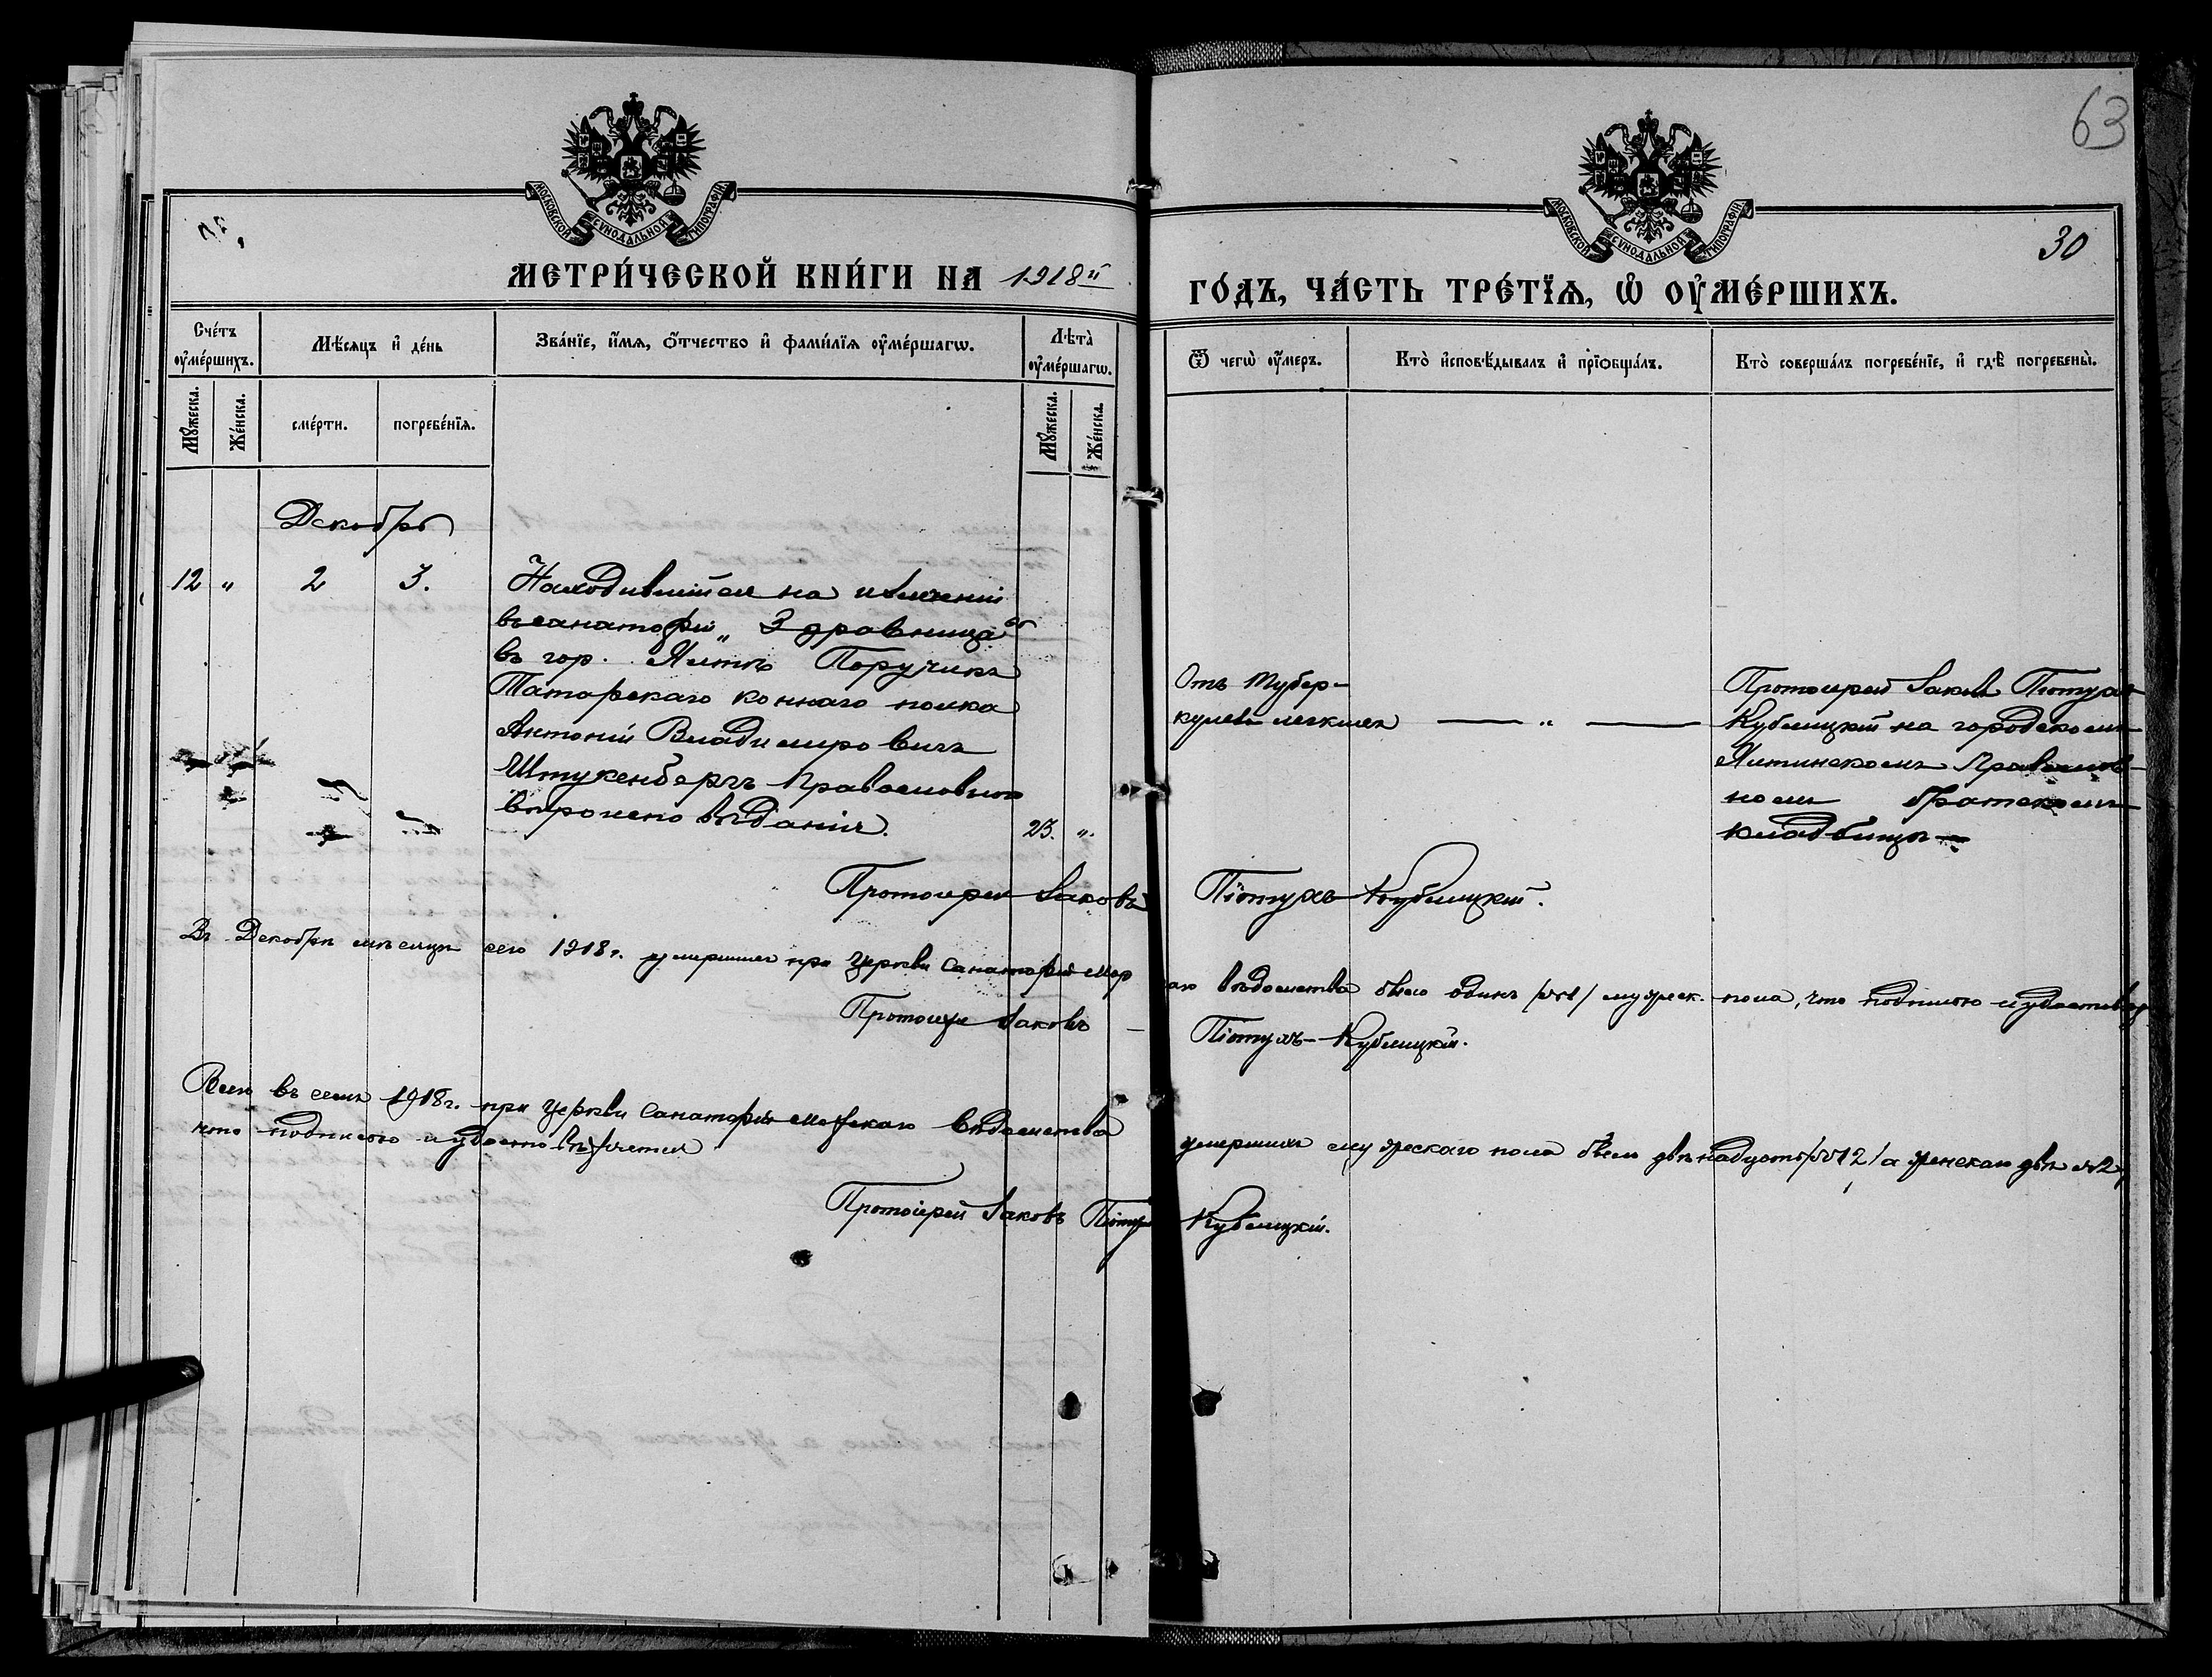 63
30
МОСКОВСКОЙ СѴНОДАЛЬНОЙ ТИПОГРАФІИ
МОСКОВСКОЙ СѴНОДАЛЬНОЙ ТИПОГРАФІИ
МЕТРИ́ЧЕСКОЙ КНИ́ГИ НА 1918й ГО́ДЪ, ЧА́СТЬ ТРЕ́ТЇѦ, Ѡ҆ ОУ҆МЕ́РШИХЪ.
Сче́тъ оу҆ме́ршихъ.
Мꙋ́жеска.
Же́нска.
Мѣ́сяцъ и҆ де́нь
сме́рти.
погребе́нїѧ.
Зва́нїе, и҆́мѧ, ѻ҆́тчество и҆ фами́лїѧ оу҆ме́ршагѡ.
Лѣта̀ оу҆ме́ршагѡ.
Мꙋ́жеска.
Же́нска.
Ѿ чегѡ̀ оу҆́меръ.
Кто̀ и҆сповѣ́дывалъ и҆ прїѡбща́лъ.
Кто̀ соверша́лъ погребе́нїе, и҆ гдѣ̀ погребены̀.
Декабрь
12 " 2 3.
Находившійся на излеченіи
въ санаторіи "Здравница"
въ гор. Ялтѣ Поручикъ
Татарскаго коннаго полка
Антоній Владимировичъ
Штукенбергъ Православнаго
вѣроисповѣданія. 23. ".
Отъ тубер-
кулеза легкихъ — " —
Протоіерей Іаковъ Піотухъ
Кублицкій на городскомъ
Ялтинскомъ Православ-
номъ братскомъ
кладбищѣ
Протоіерей Іаковъ Піотухъ Кублицкій.
Въ Декабрѣ мѣсяцѣ сего 1918 г. умершихъ при Церкви Санаторіи Мор
аго вѣдомства былъ одинъ /№1/ мужеск. пола, что подписью и удостовер
Протоіерей Іаковъ Піотухъ-Кублицкій.
Всего въ семъ 1918 г. при Церкви Санаторіи Морскаго Вѣдомства умершихъ мужескаго пола было двѣнадцать /№12/ а женскаго двѣ №2/
что подписью и удостовѣряется
Протоіерей Іаковъ Піотухъ Кублицкій.